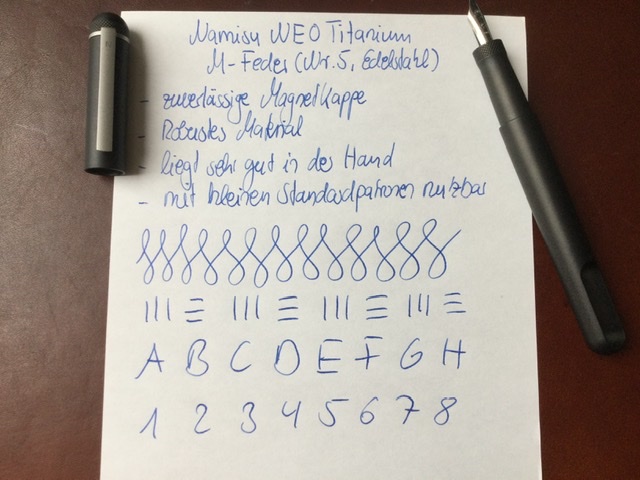 Namisu NEO Titanium
M-Feder (Nr. 5, Edelstahl)
- zuverlässige Magnetkappe
- Robustes Material
- liegt sehr gut in der Hand
- mit kleinen Standardpatronen nutzbar
A B C D E F G H
1 2 3 4 5 6 7 8